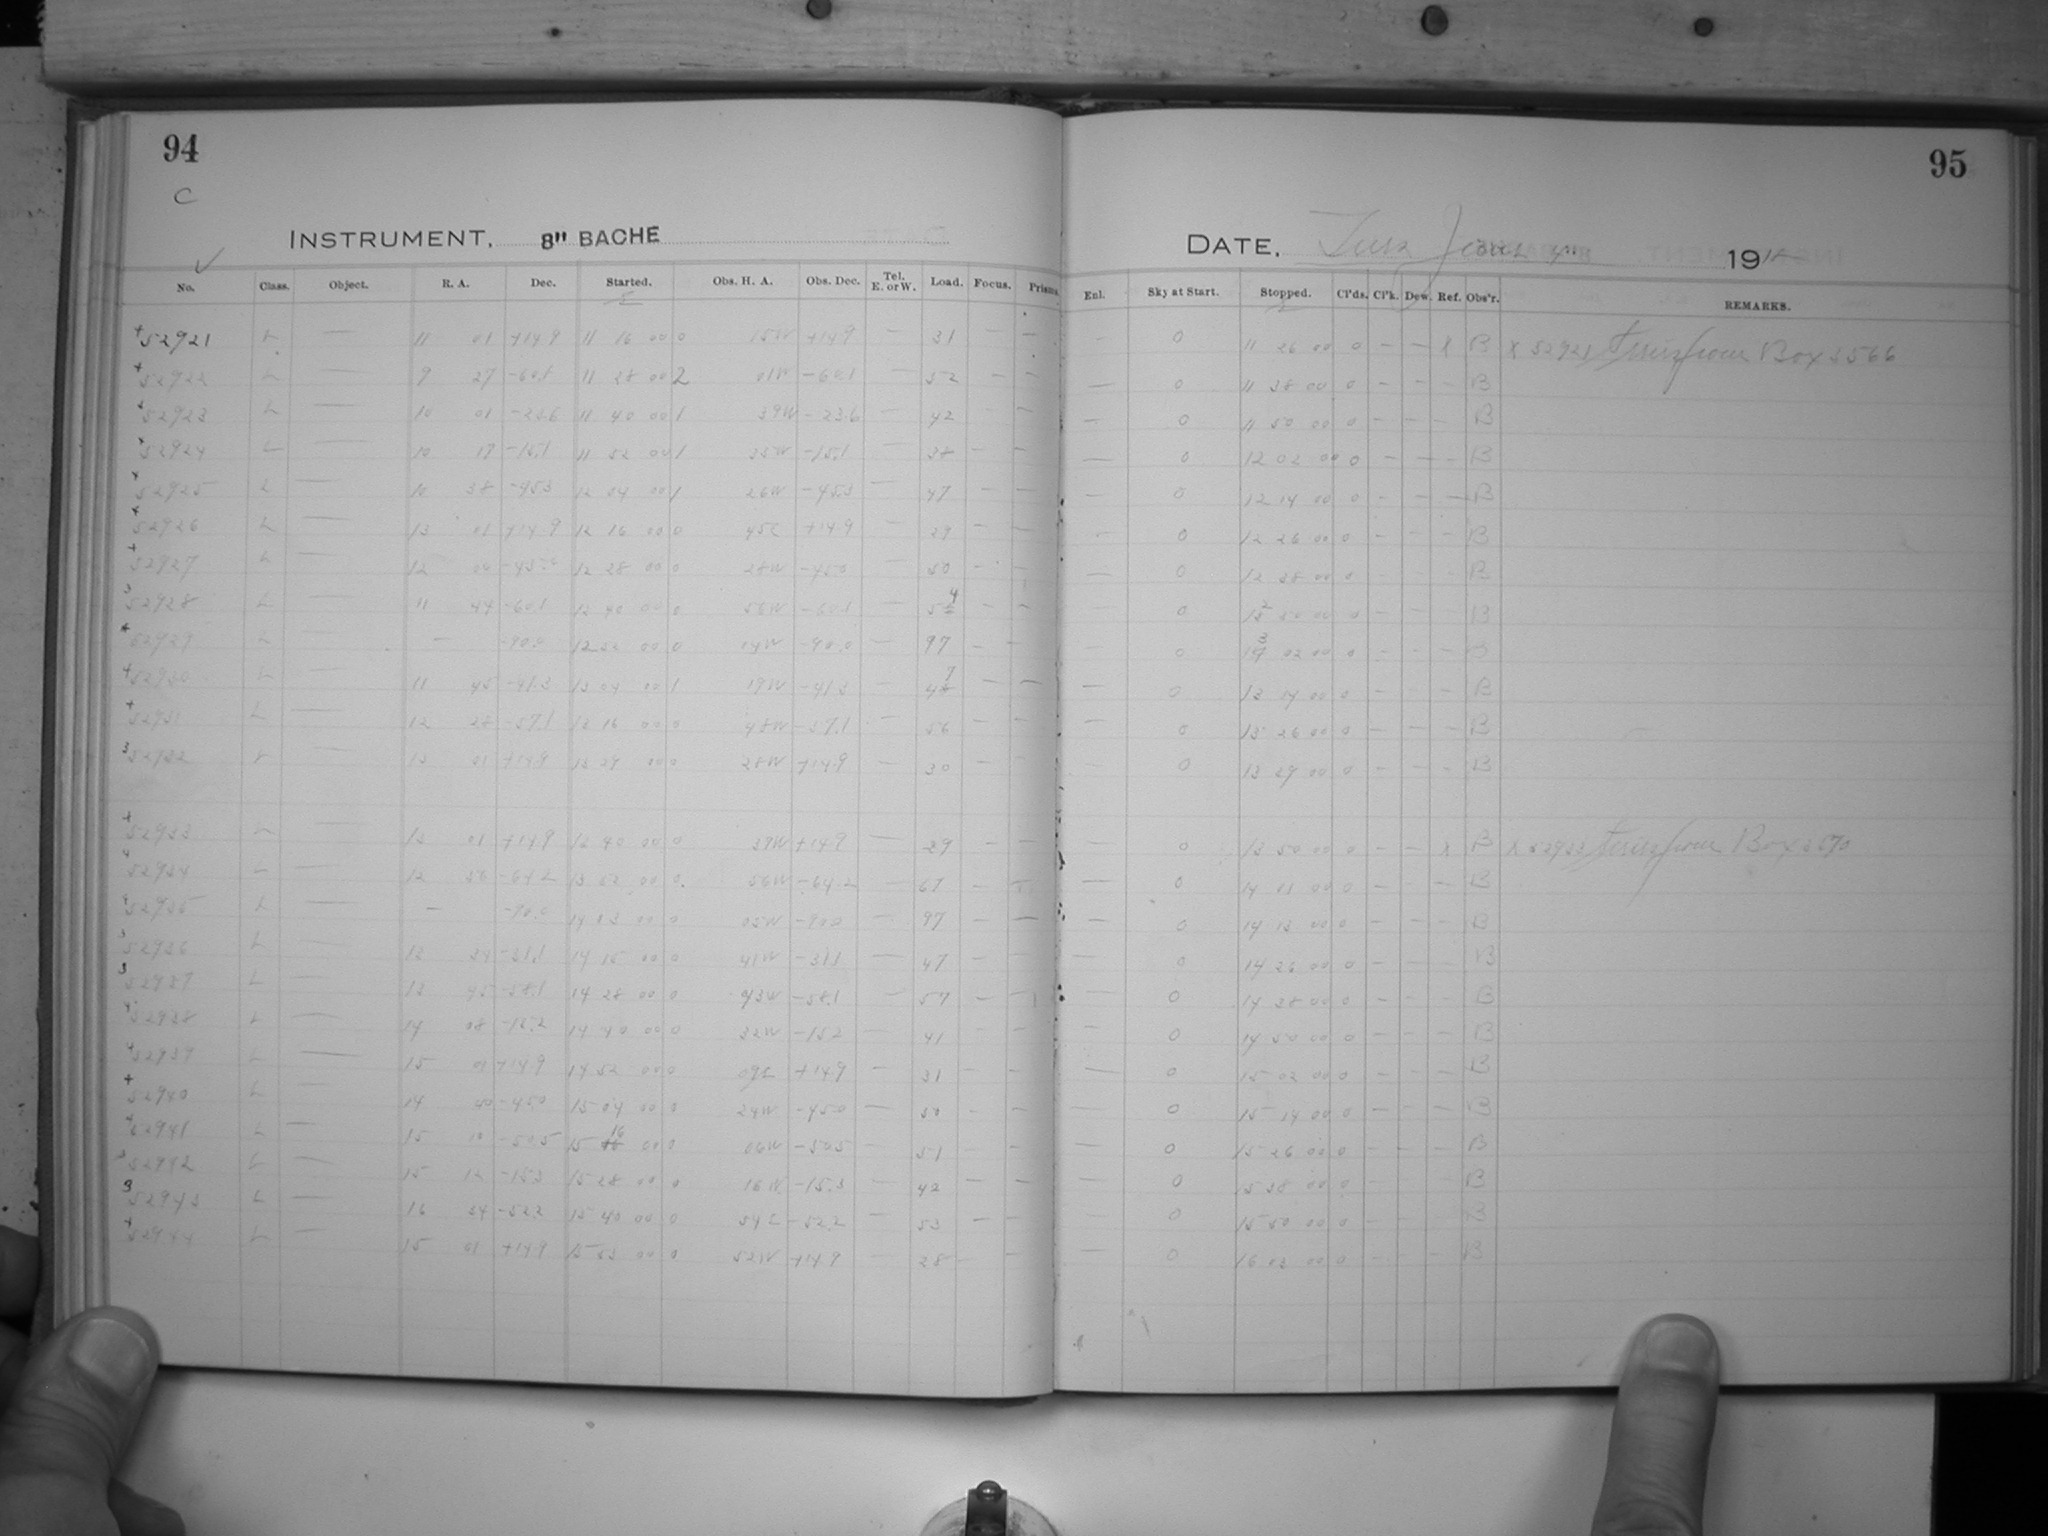 94
C
INSTRUMENT, 8" BACHE
No. Class. Object. R. A. Dec. Started. Obs. H. A. Obs. Dec. Tel. E. or W. Load. Focus. Prisms.
52921 L — 11 01 +14.9 11 16 00 0 15W +14.9 31 — —
52922 L — 9 27 11 28 00 2 01W -60.1 — 52 — —
52923 L — 10 01 -23.6 11 40 00 1 39W -23.6 — 42 — —
52924 L — 10 17 -15.1 11 52 00 1 35W -15.1 — 38 — —
52925 L — 10 38 -45.3 12 04 00 1 26W -45.3 — 47 — —
52926 L — 13 01 +14.9 12 16 00 0 45E +14.9 — 29 — —
52927 L — 12 00 -45.0 12 28 00 0 28W -45.0 — 50 — —
52928 L — 11 44 -60.1 12 40 00 0 56W -60.1 — 54 — —
52929 L — — -90.0 12 52 00 0 04W -90.0 — 97 — —
52930 L — 11 45 -41.3 13 04 00 1 19W -41.3 — 47 — —
52931 L — 12 28 -57.1 13 16 00 0 48W -57.1 — 56 — —
52932 L — 13 01 +14.9 13 29 00 0 28W +14.9 — 30 — —
52933 L — 13 01 +14.9 13 40 00 0 39W +14.9 — 29 — —
52934 — 12 56 -64.2 13 52 00 0 56W -64.2 — 67 — —
52935 L — — -90.0 14 03 00 0 05W -90.0 — 97 — —
52936 L — 13 34 -31.1 14 15 00 0 41W -31.1 — 47 — —
52937 L — 13 45 -58.1 14 28 00 0 43W -58.1 — 57 — —
52938 L — 14 08 -15.2 14 40 00 0 32W -15.2 — 41 — —
52939 L — 15 01 +14.9 14 52 00 0 09E +14.9 — 31 — —
52940 L — 14 40 -45.0 15 04 00 0 24W -45.0 — 50 — —
52941 L — 15 10 -50.5 15 16 00 0 06W -50.5 — 51 — —
52942 L — 15 12 -15.3 15 28 00 0 16W -15.3 — 42 — —
52943 L — 16 34 -52.2 15 40 00 0 54E -52.2 — 53 — —
52944 L — 15 01 +14.9 15 53 00 0 52W +14.9 — 28 — —
95
DATE, 1912
Enl. Sky at Start. Stopped. Cl'ds. Cl'k. Dew. Ref. Obs'r. REMARKS.
— 0 11 26 00 0 — — X B X 52921 from Box 2566
— 0 11 38 00 0 — — — B
— 0 11 50 00 0 — — — B
— 0 12 02 00 0 — — — B
— 0 12 14 00 0 — — — B
— 0 12 26 00 0 — — — B
— 0 12 38 00 0 — — — B
0 12 50 00 0 — — — B
0 13 02 00 0 — — — B
— 0 13 14 00 0 — — — B
— 0 13 26 00 0 — — — B
— 0 13 39 00 0 — — — B
— 0 13 50 00 0 — — X B X 52933 from Box 2570
— 0 14 11 00 0 — — — B
— 0 14 13 00 0 — — — B
— 0 14 26 00 0 — — — B
— 0 14 38 00 0 — — — B
— 0 14 50 00 0 — — — B
— 0 15 02 00 0 — — — B
— 0 15 14 00 0 — — — B
— 0 15 26 00 0 — — — B
— 0 15 38 00 0 — — — B
— 0 15 50 00 0 — — — B
— 0 16 03 00 0 — — — B